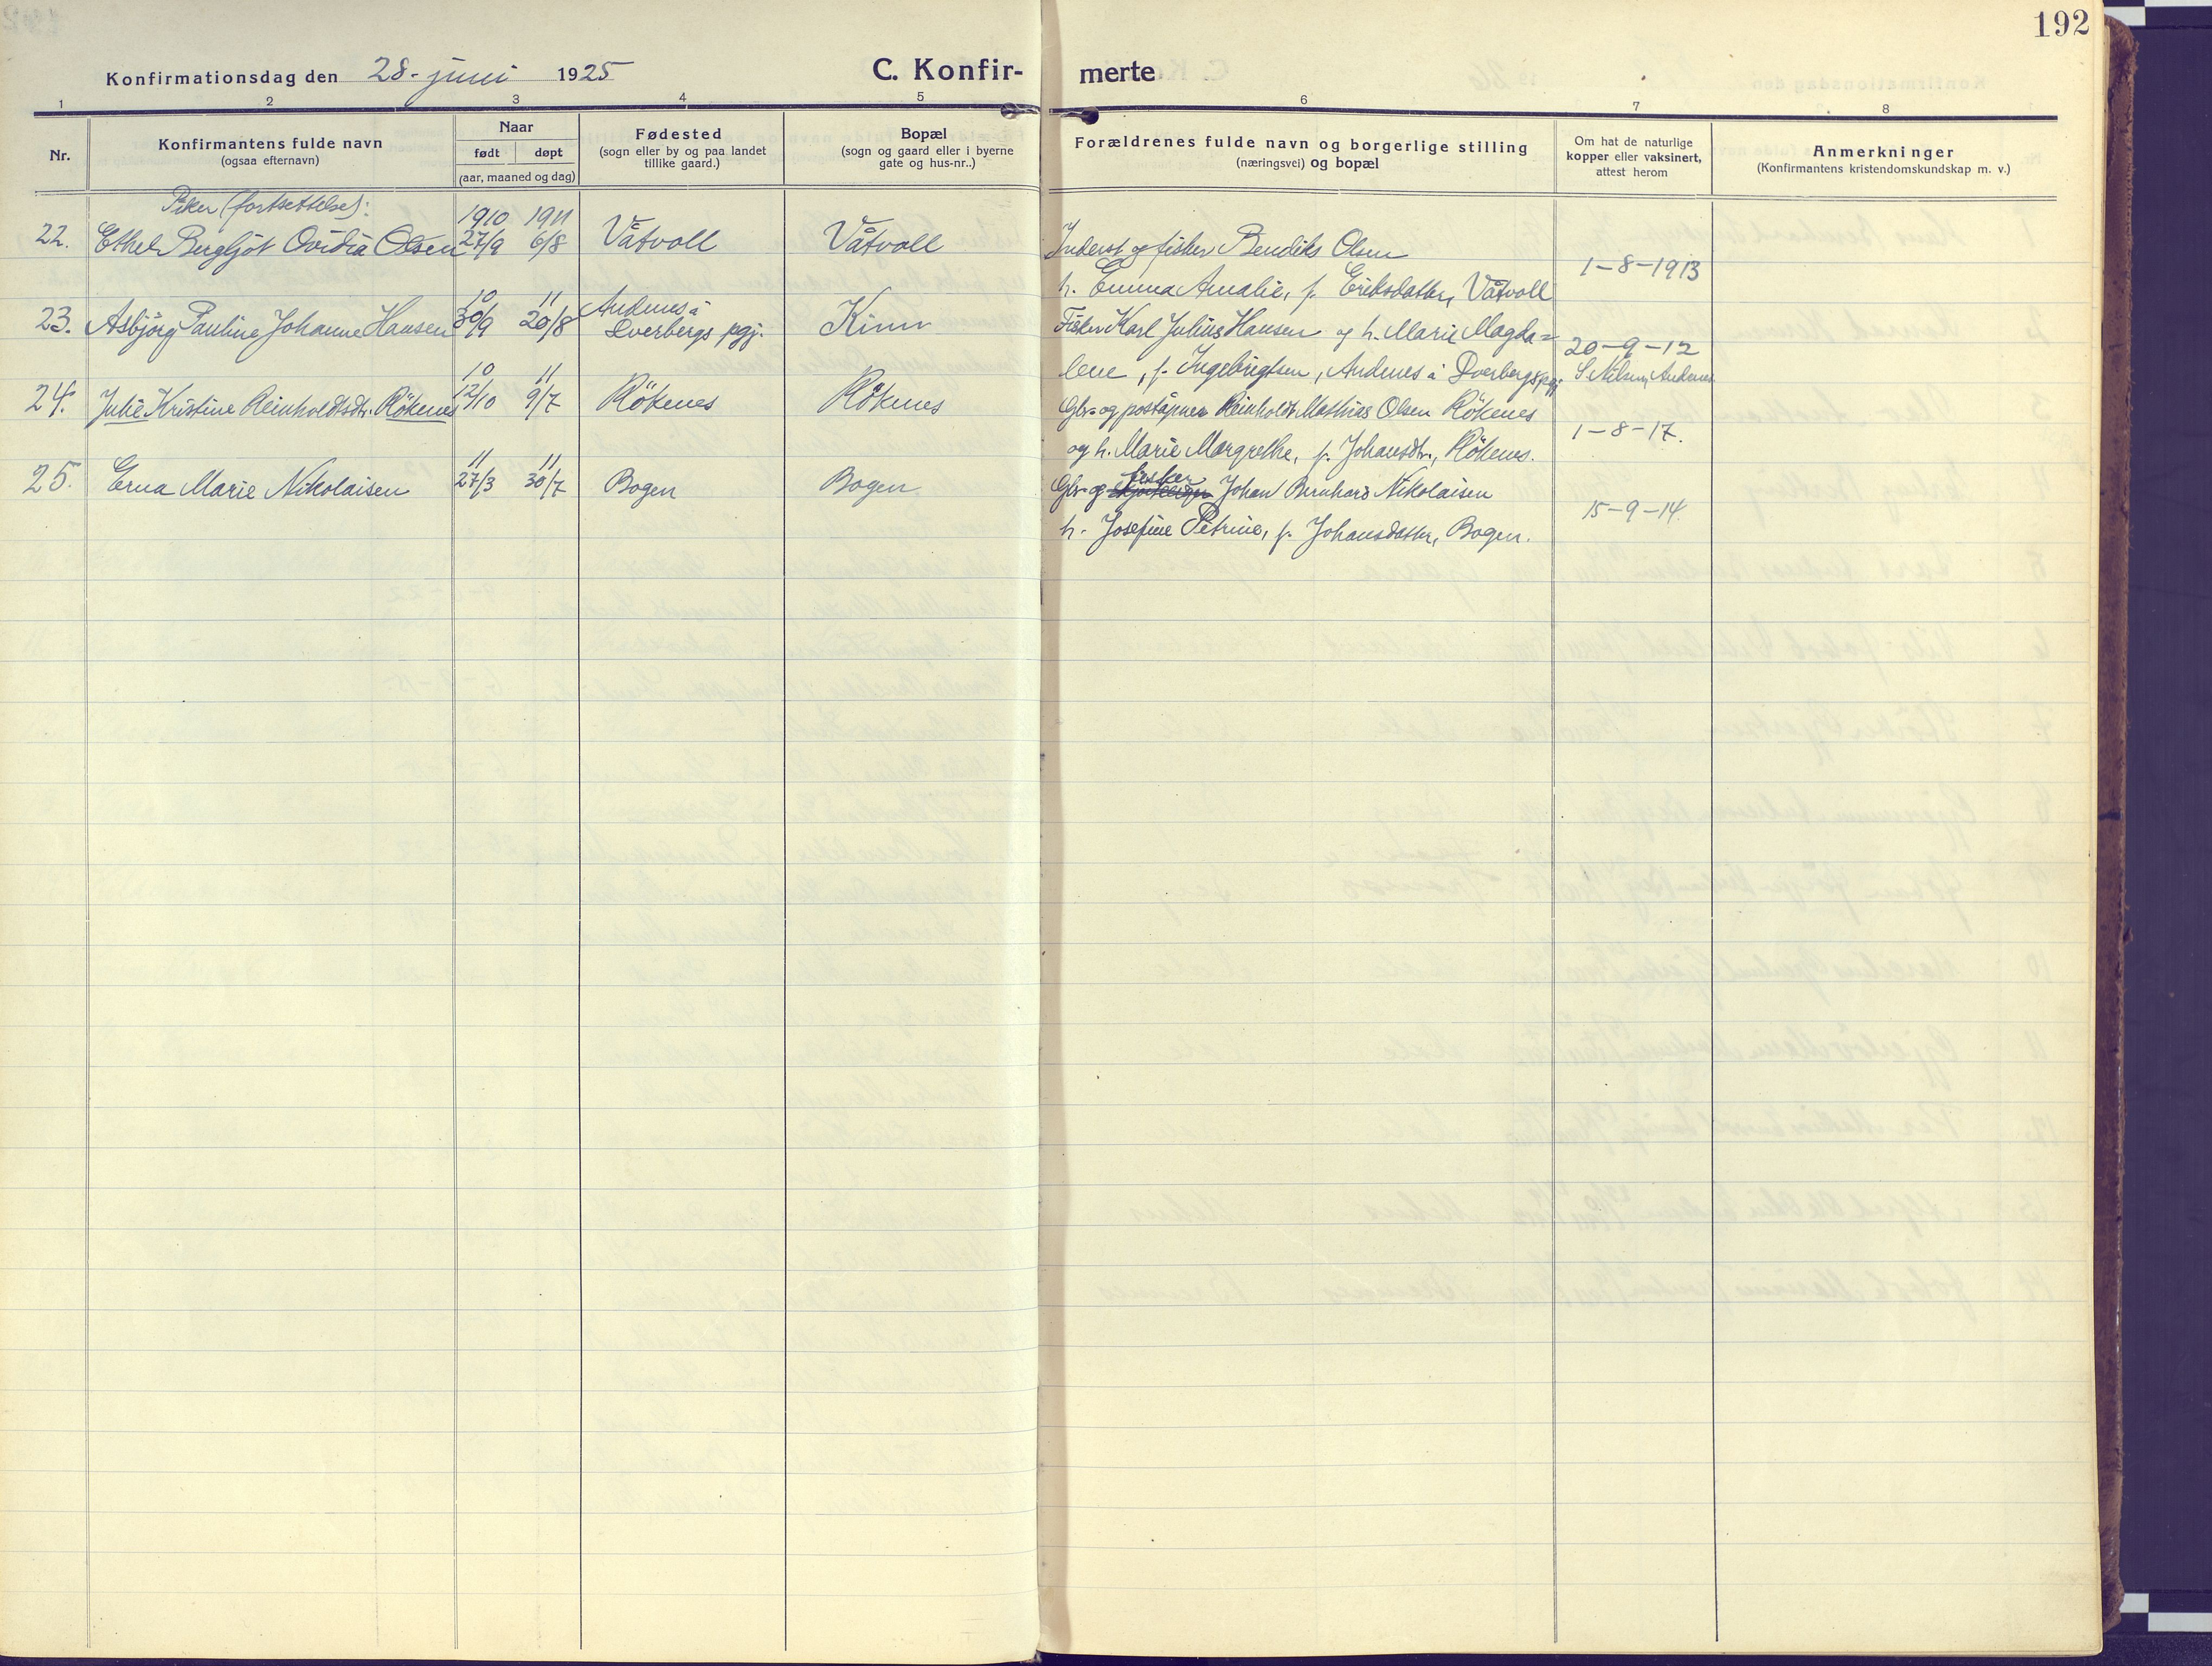 192
Konfirmationsdag den 28. juni 1925
C. Konfirmerte
1 2 3 4 5 6 7 8
Nr.
Konfirmantens fulde navn
(ogsaa efternavn)
Naar
født døpt
(aar, maaned og dag)
Fødested
(sogn eller by og paa landet
tillike gaard.)
Bopæl
(sogn og gaard eller i byerne
gate og hus-nr..)
Forældrenes fulde navn og borgerlige stilling
(næringsvei) og bopæl
Om hat de naturlige
kopper eller vaksinert,
attest herom
Anmerkninger
(Konfirmantens kristendomskundskap m. v.)
Piker (fortsettelse):
22. Ethel Bergljot Ovidia Olsen 1910 27/9 1911 6/8 Våtvoll Våtvoll Inderst og fisker Bendiks Olsen
h. Emma Amalie, f. Eriksdatter, Våtvoll 1-8-1913
23. Asbjörg Pauline Johanne Hansen 10 30/9 11 20/8 Andenes i
Dverbergs pgj. Kinn Fisker Karl Julius Hansen og h. Marie Magda=
lene, f. Ingebrigtsen, Andenes i Dverbergs pgj. 20-9-12
S. Nilsen, Andenes
24. Julie Kristine Reinholdtsdtr. Rökenes 10 12/10 11 9/7 Rökenes Rökenes Gbr- og poståpner Reinholdt Mathias Olsen Rökenes
og h. Marie Margrethe, f. Johansdtr., Rökenes. 1-8-17.
25. Erna Marie Nikolaisen 11 27/3 11 30/7 Bogen Bogen Gbr- og fisker Johan Bernhard Nikolaisen
h. Josefine Petrine, f. Johansdatter, Bogen. 15-9-14.